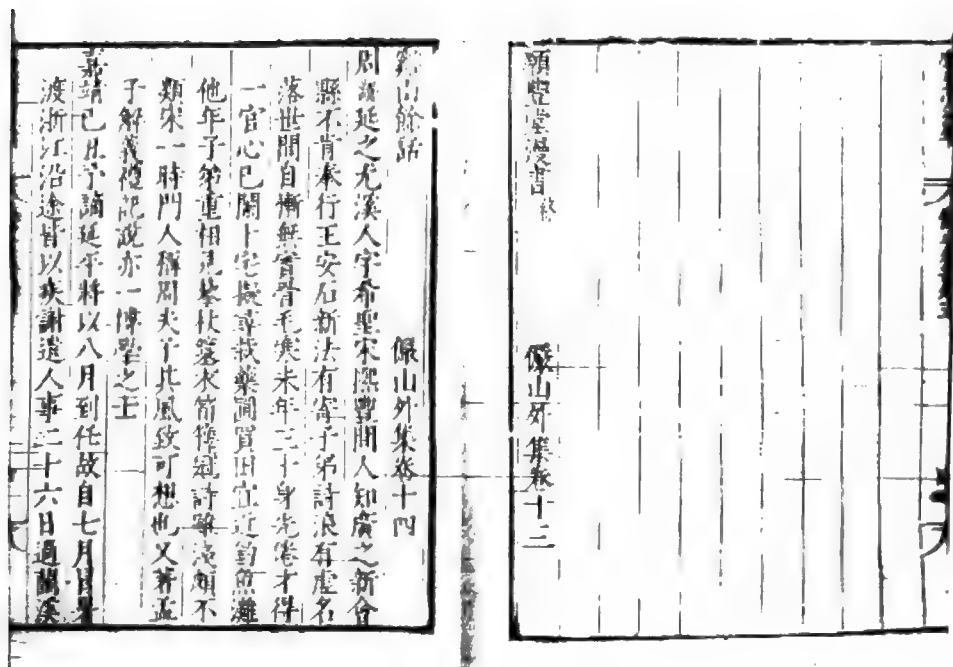 願豐堂漫書終
儼山外集卷十三
豁山餘話
儼山外集卷十四
周諝延之尤溪人字希聖宋熙豐間人知廣之新會
縣不肯奉行王安石新法有寄子弟詩浪有虛名
落世間自慚無骨毛寒未年三十身先老才得
一官心已閑卜宅擬尋栽藥圃買田宜近釣魚灘
他年子弟重相見藜杖簑衣箬籜冠詩雖淺頗不
類宋一時門人稱周夫子其風致可想也又著孟
子解義禮記說亦一博學之士
嘉靖己丑予謫延平將以八月到任故自七月冒暑
渡浙江沿途皆以疾謝遣人事二十六日過蘭溪